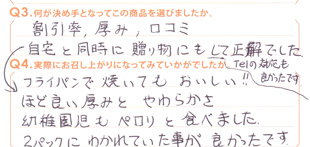 Q3.何が決め手となってこの商品を選びましたか。
割引率，厚み，口コミ
自宅と同時に贈り物にもして正解でした
Q4.実際にお召し上がりになってみていかがでしたか。
Telの対応も
良かったです
フライパンで焼いてもおいしい!!
ほど良い厚みとやわらかさ
幼稚園児もペロリと食べました.
2パックにわかれていた事が良かったです.